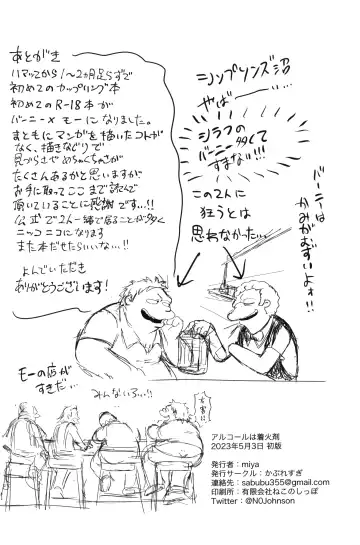 あとがき
ハマってから1〜2ヵ月足らずで
初めてのカップリング本
初めてのR-18本が
バーニー×モーになりました。
まともにマンガを描いたコトが
なく、描きなぐりで
見づらさでめちゃくちゃさが
たくさんあるかと思いますが
お手に取ってここまで読んで
頂いていることに感謝です…!!
公式で2人一緒に居ることが多く
ニッコニコになります
また本だせたらいいな…!!
よんでいただき
ありがとうございます!
シンプソンズ沼
やばー…
シラフの
バーニー多くて
すまない!!!
この2人に
狂うとは
思わなかった…
バーニーは
かみがむずいよォ!!
モーの店が
すきだ…
みんないろ…!!
アルコールは着火剤
2023年5月3日 初版
発行者:miya
発行サークル:かぶれすぎ
連絡先:sabubu355@gmail.com
印刷所:有限会社ねこのしっぽ
Twitter:@N0Johnson